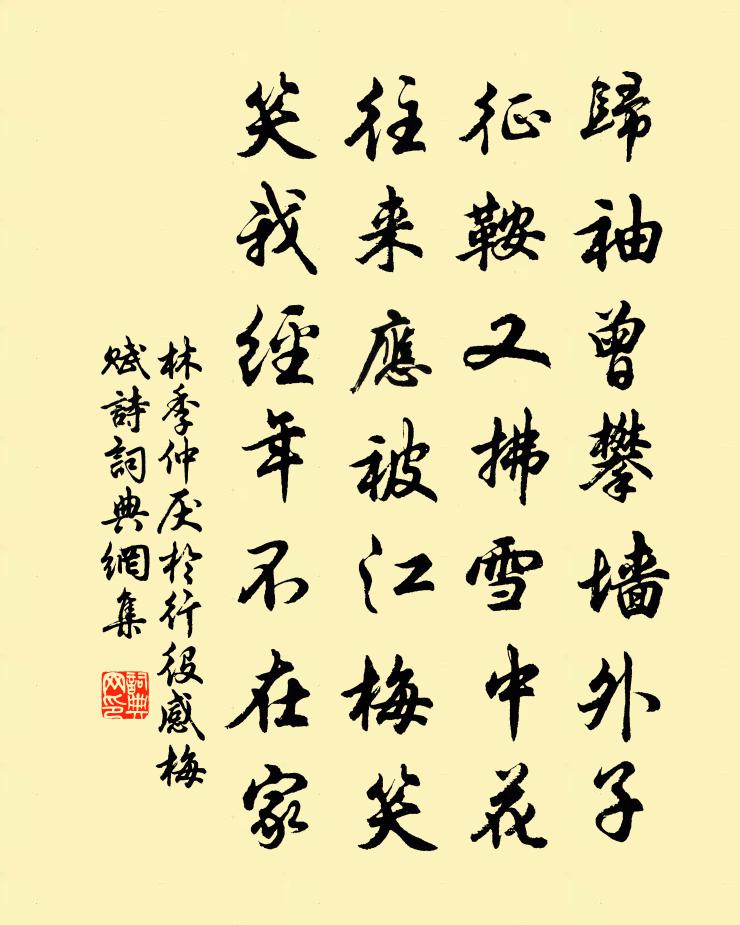 歸袖曾攀墙外子
征鞍又拂雪中花
往来應被江梅笑
笑我經年不在家
林季仲厌於行役感梅
赋詩詞典網集
詞典
网印